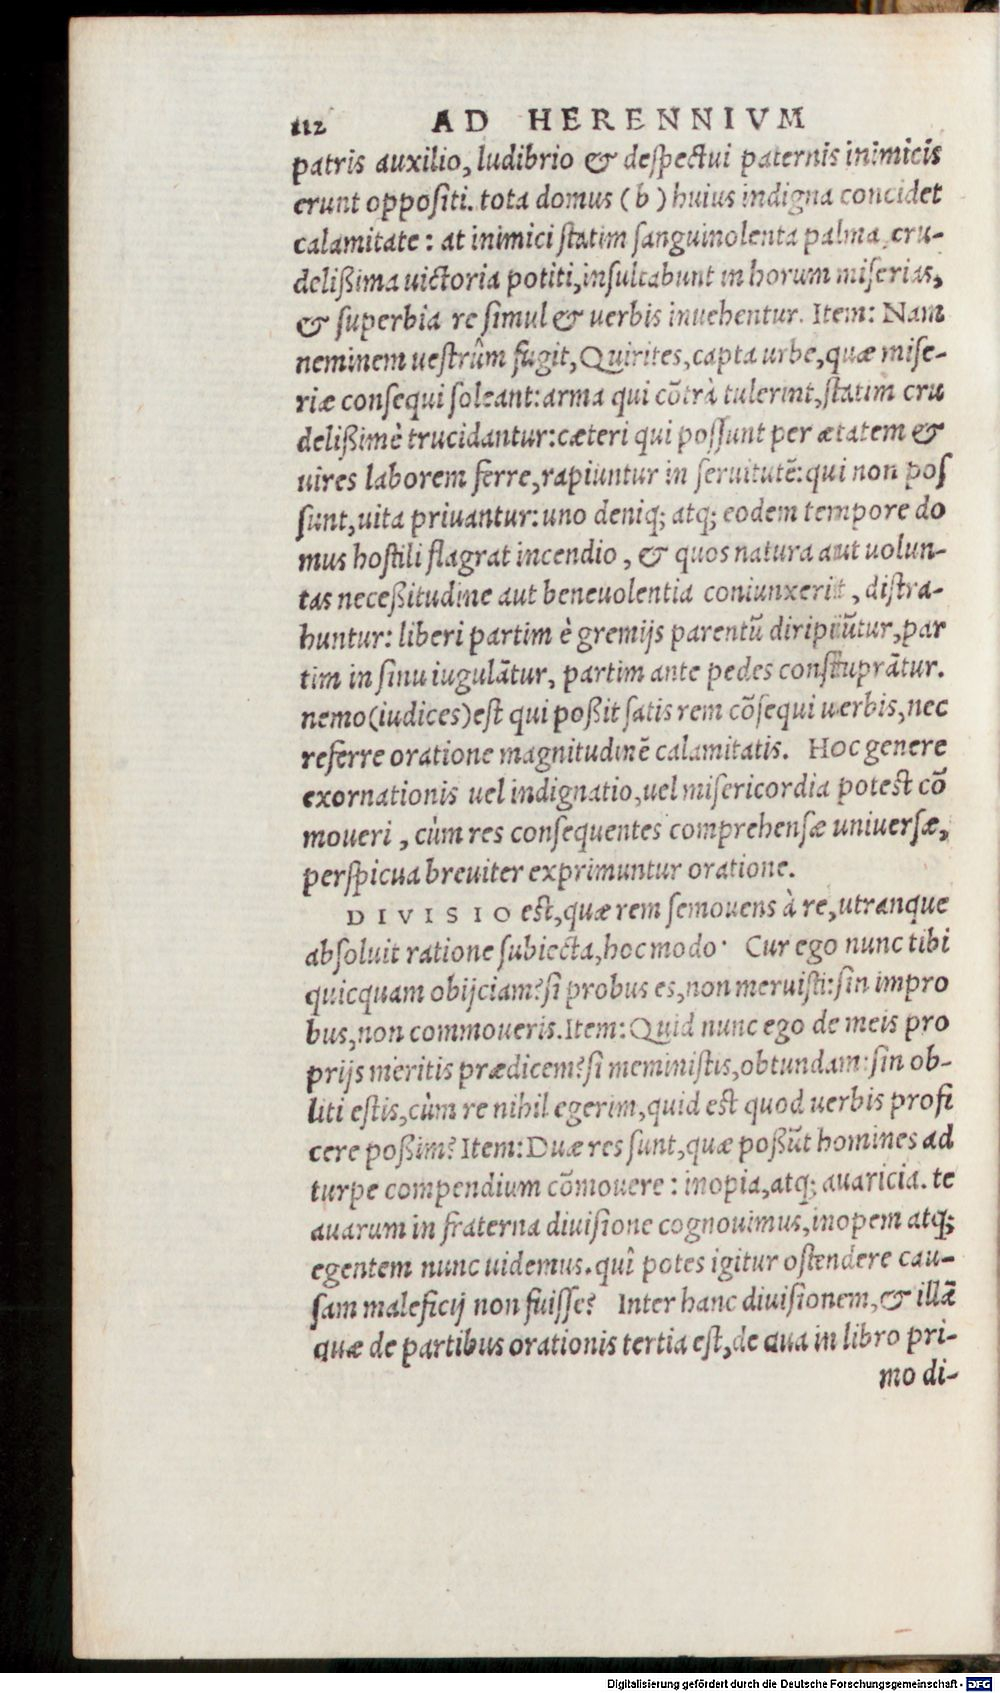 112 AD HERENNIVM
patris auxilio, ludibrio & deſpectui paternis inimicis
erunt oppoſiti. tota domus (b) huius indigna concidet
calamitate: at inimici ſtatim ſanguinolenta palma, cru-
delißima uictoria potiti, inſultabunt in horum miſerias,
& ſuperbia re ſimul & uerbis inuehentur. Item: Nam
neminem ueſtrûm fugit, Quirites, capta urbe, quæ miſe-
riæ conſequi ſoleant: arma qui cõtrà tulerint, ſtatim cru
delißimè trucidantur: cæteri qui poſſunt per ætatem &
uires laborem ferre, rapiuntur in ſeruitutẽ: qui non poſ
ſunt, uita priuantur: uno deniq; atq; eodem tempore do
mus hoſtili flagrat incendio, & quos natura aut uolun-
tas neceßitudine aut beneuolentia coniunxerit, diſtra-
huntur: liberi partim è gremijs parentũ diripiũtur, par
tim in ſinu iugulãtur, partim ante pedes conſtuprãtur.
nemo (iudices) eſt qui poßit ſatis rem cõſequi uerbis, nec
referre oratione magnitudinẽ calamitatis. Hoc genere
exornationis uel indignatio, uel miſericordia poteſt cõ
moueri, cùm res conſequentes comprehenſæ uniuerſæ,
perſpicua breuiter exprimuntur oratione.
DIVISIO eſt, quæ rem ſemouens à re, utranque
abſoluit ratione ſubiecta, hoc modo· Cur ego nunc tibi
quicquam obijciam? ſi probus es, non meruiſti: ſin impro
bus, non commoueris. Item: Quid nunc ego de meis pro
prijs meritis prædicem? ſi meminiſtis, obtundam: ſin ob-
liti eſtis, cùm re nihil egerim, quid eſt quod uerbis profi
cere poßim? Item: Duæ res ſunt, quæ poßũt homines ad
turpe compendium cõmouere: inopia, atq; auaricia. te
auarum in fraterna diuiſione cognouimus, inopem atq;
egentem nunc uidemus. quî potes igitur oſtendere cau-
ſam maleficij non fuiſſe? Inter hanc diuiſionem, & illã
quæ de partibus orationis tertia eſt, de qua in libro pri-
mo di-
Digitalisierung gefördert durch die Deutsche Forschungsgemeinschaft - DFG